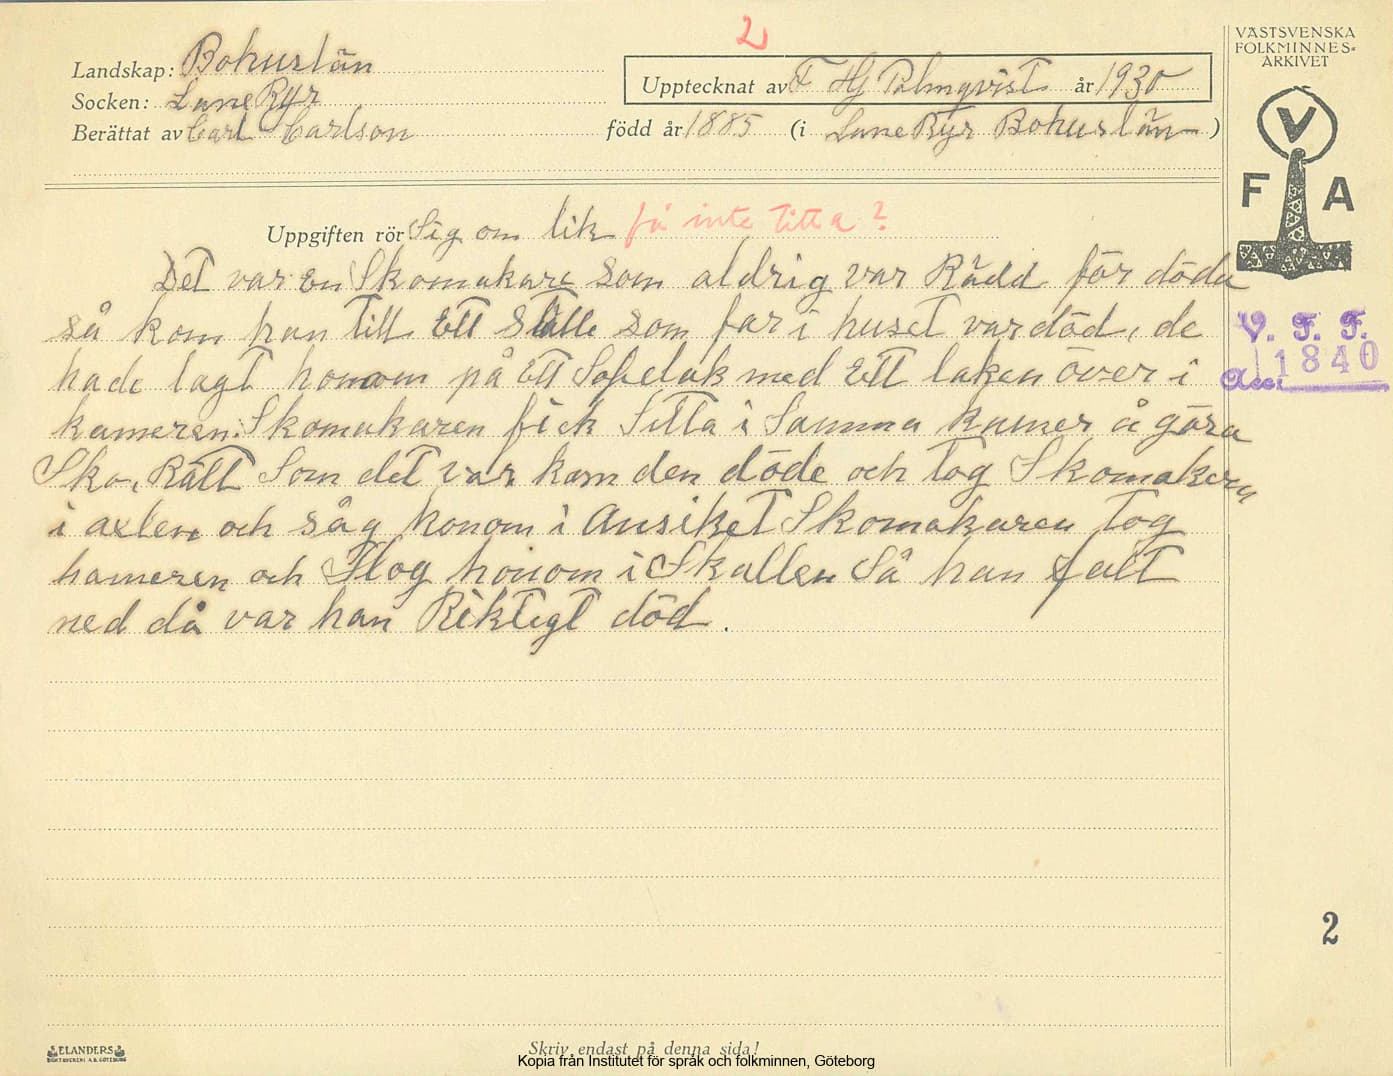 2
VÄSTSVENSKA
FOLKMINNES-
ARKIVET
Landskap: Bohuslän
Upptecknat av F Hj Palmqvist år 1930
Socken: LaneRyr
Berättat av Carl Carlson född år 1885 (i LaneRyr Bohuslän)
V
F A
Uppgiften rör Sig om lik få inte titta?
Det var en Skomakare som aldrig var Rädd för döda
så kom han till Ett Ställe som far i huset var död, de
hade lagt honom på Ett Sofelak med Ett laken över i
kameren. Skomakaren fick Sitta i Samma kamer å göra
Skor, Rätt Som det var kom den döde och tog Skomakern
i axlen och såg honom i Ansiket Skomakaren tog
hameren och Slog honom i Skallen Så han falt
ned då var han Riktigt död.
V. F. F.
Acc. 1840
2
ELANDERS
BOKTRYCKERI A.B. GÖTEBORG
Skriv endast på denna sida!
Kopia från Institutet för språk och folkminnen, Göteborg